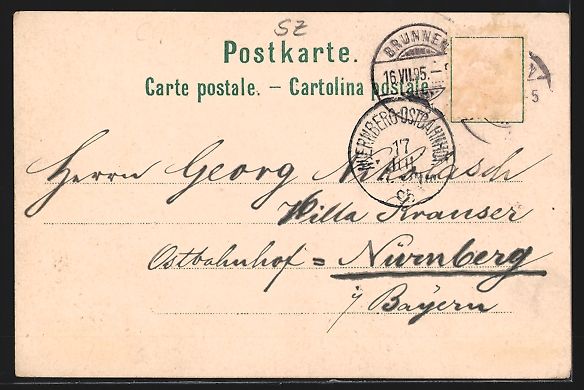 SZ
Postkarte.
Carte postale. – Cartolina postale.
BRUNNEN
16.VII.95.–
5
NUERNBERG-OSTBAHNHOF
17
JUL
95
Herrn Georg
Villa Krauser
Ostbahnhof = Nürnberg
i/ Bayern